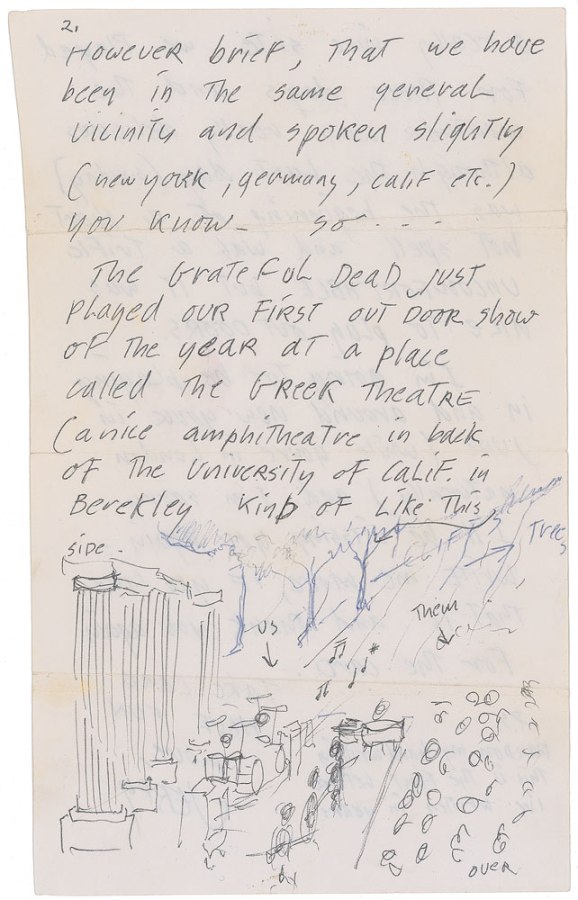 2.
However brief, that we have
been in the same general
vicinity and spoken slightly
(new york, germany, calif etc.)
you know - so - - - -
The Grateful Dead just
played our first out door show
of the year at a place
called the Greek Theatre
(a nice amphitheatre in back
of the University of Calif. in
Berekley kind of like this
side.
Trees
us
Them
over